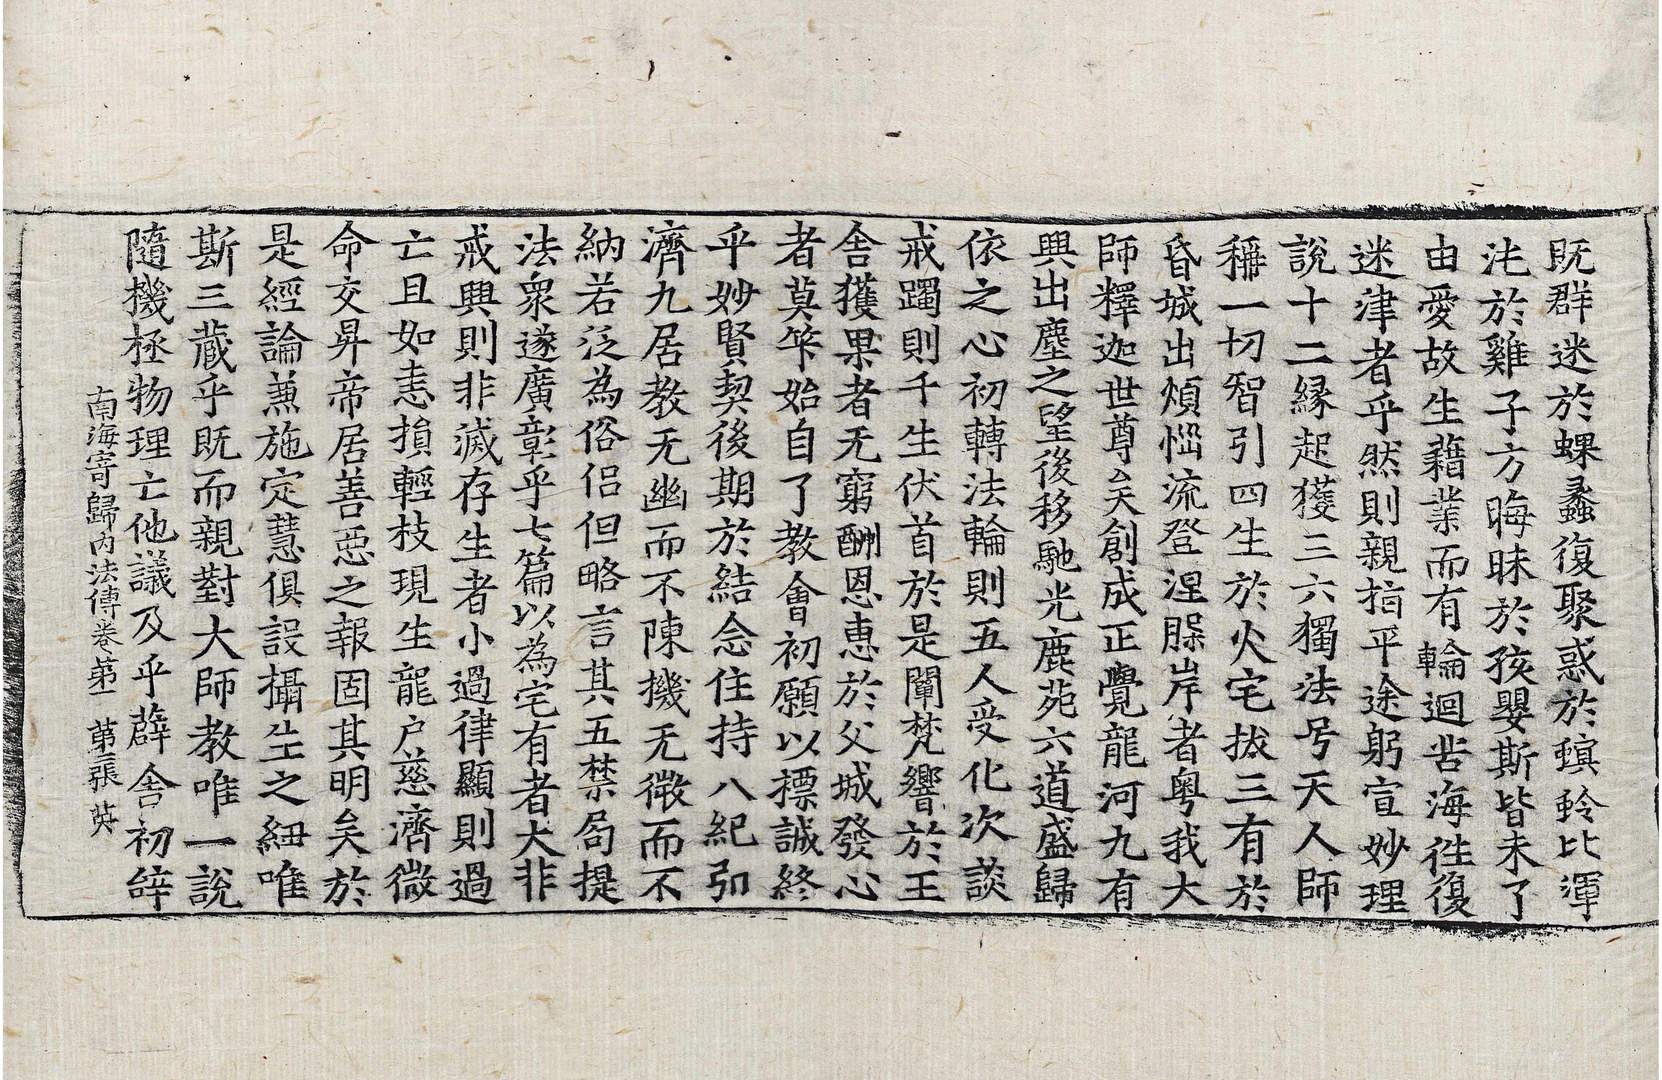 既群迷於蜾蠡復聚惑於螟蛉比渾
沌於雞子方晦昧於孩嬰斯皆未了
由愛故生藉業而有輪迴苦海往復
迷津者乎然則親指平途躬宣妙理
說十二縁起獲三六獨法号天人師
稱一切智引四生於火宅拔三有於
昏城出煩惱流登涅槃岸者粤我大
師釋迦世尊矣創成正覺龍河九有
興出塵之望後移馳光鹿苑六道盛歸
依之心初轉法輪則五人受化次談
戒躅則千生伏首於是闡梵響於王
舍獲果者无窮酬恩惠於父城發心
者莫筭始自了教會初願以標誠終
乎妙賢契後期於結念住持八紀弘
濟九居教无幽而不陳機无微而不
納若泛為俗侶但略言其五禁局提
法衆遂廣彰乎七篇以為宅有者大非
戒興則非滅存生者小過律顯則過
亡且如恚損輕枝現生龍户慈濟微
命交昇帝居善惡之報固其明矣於
是經論兼施定慧俱設攝生之紐唯
斯三藏乎既而親對大師教唯一說
隨機拯物理亡他議及乎薜舍初辞
南海寄歸內法傳卷第一 第三張 英